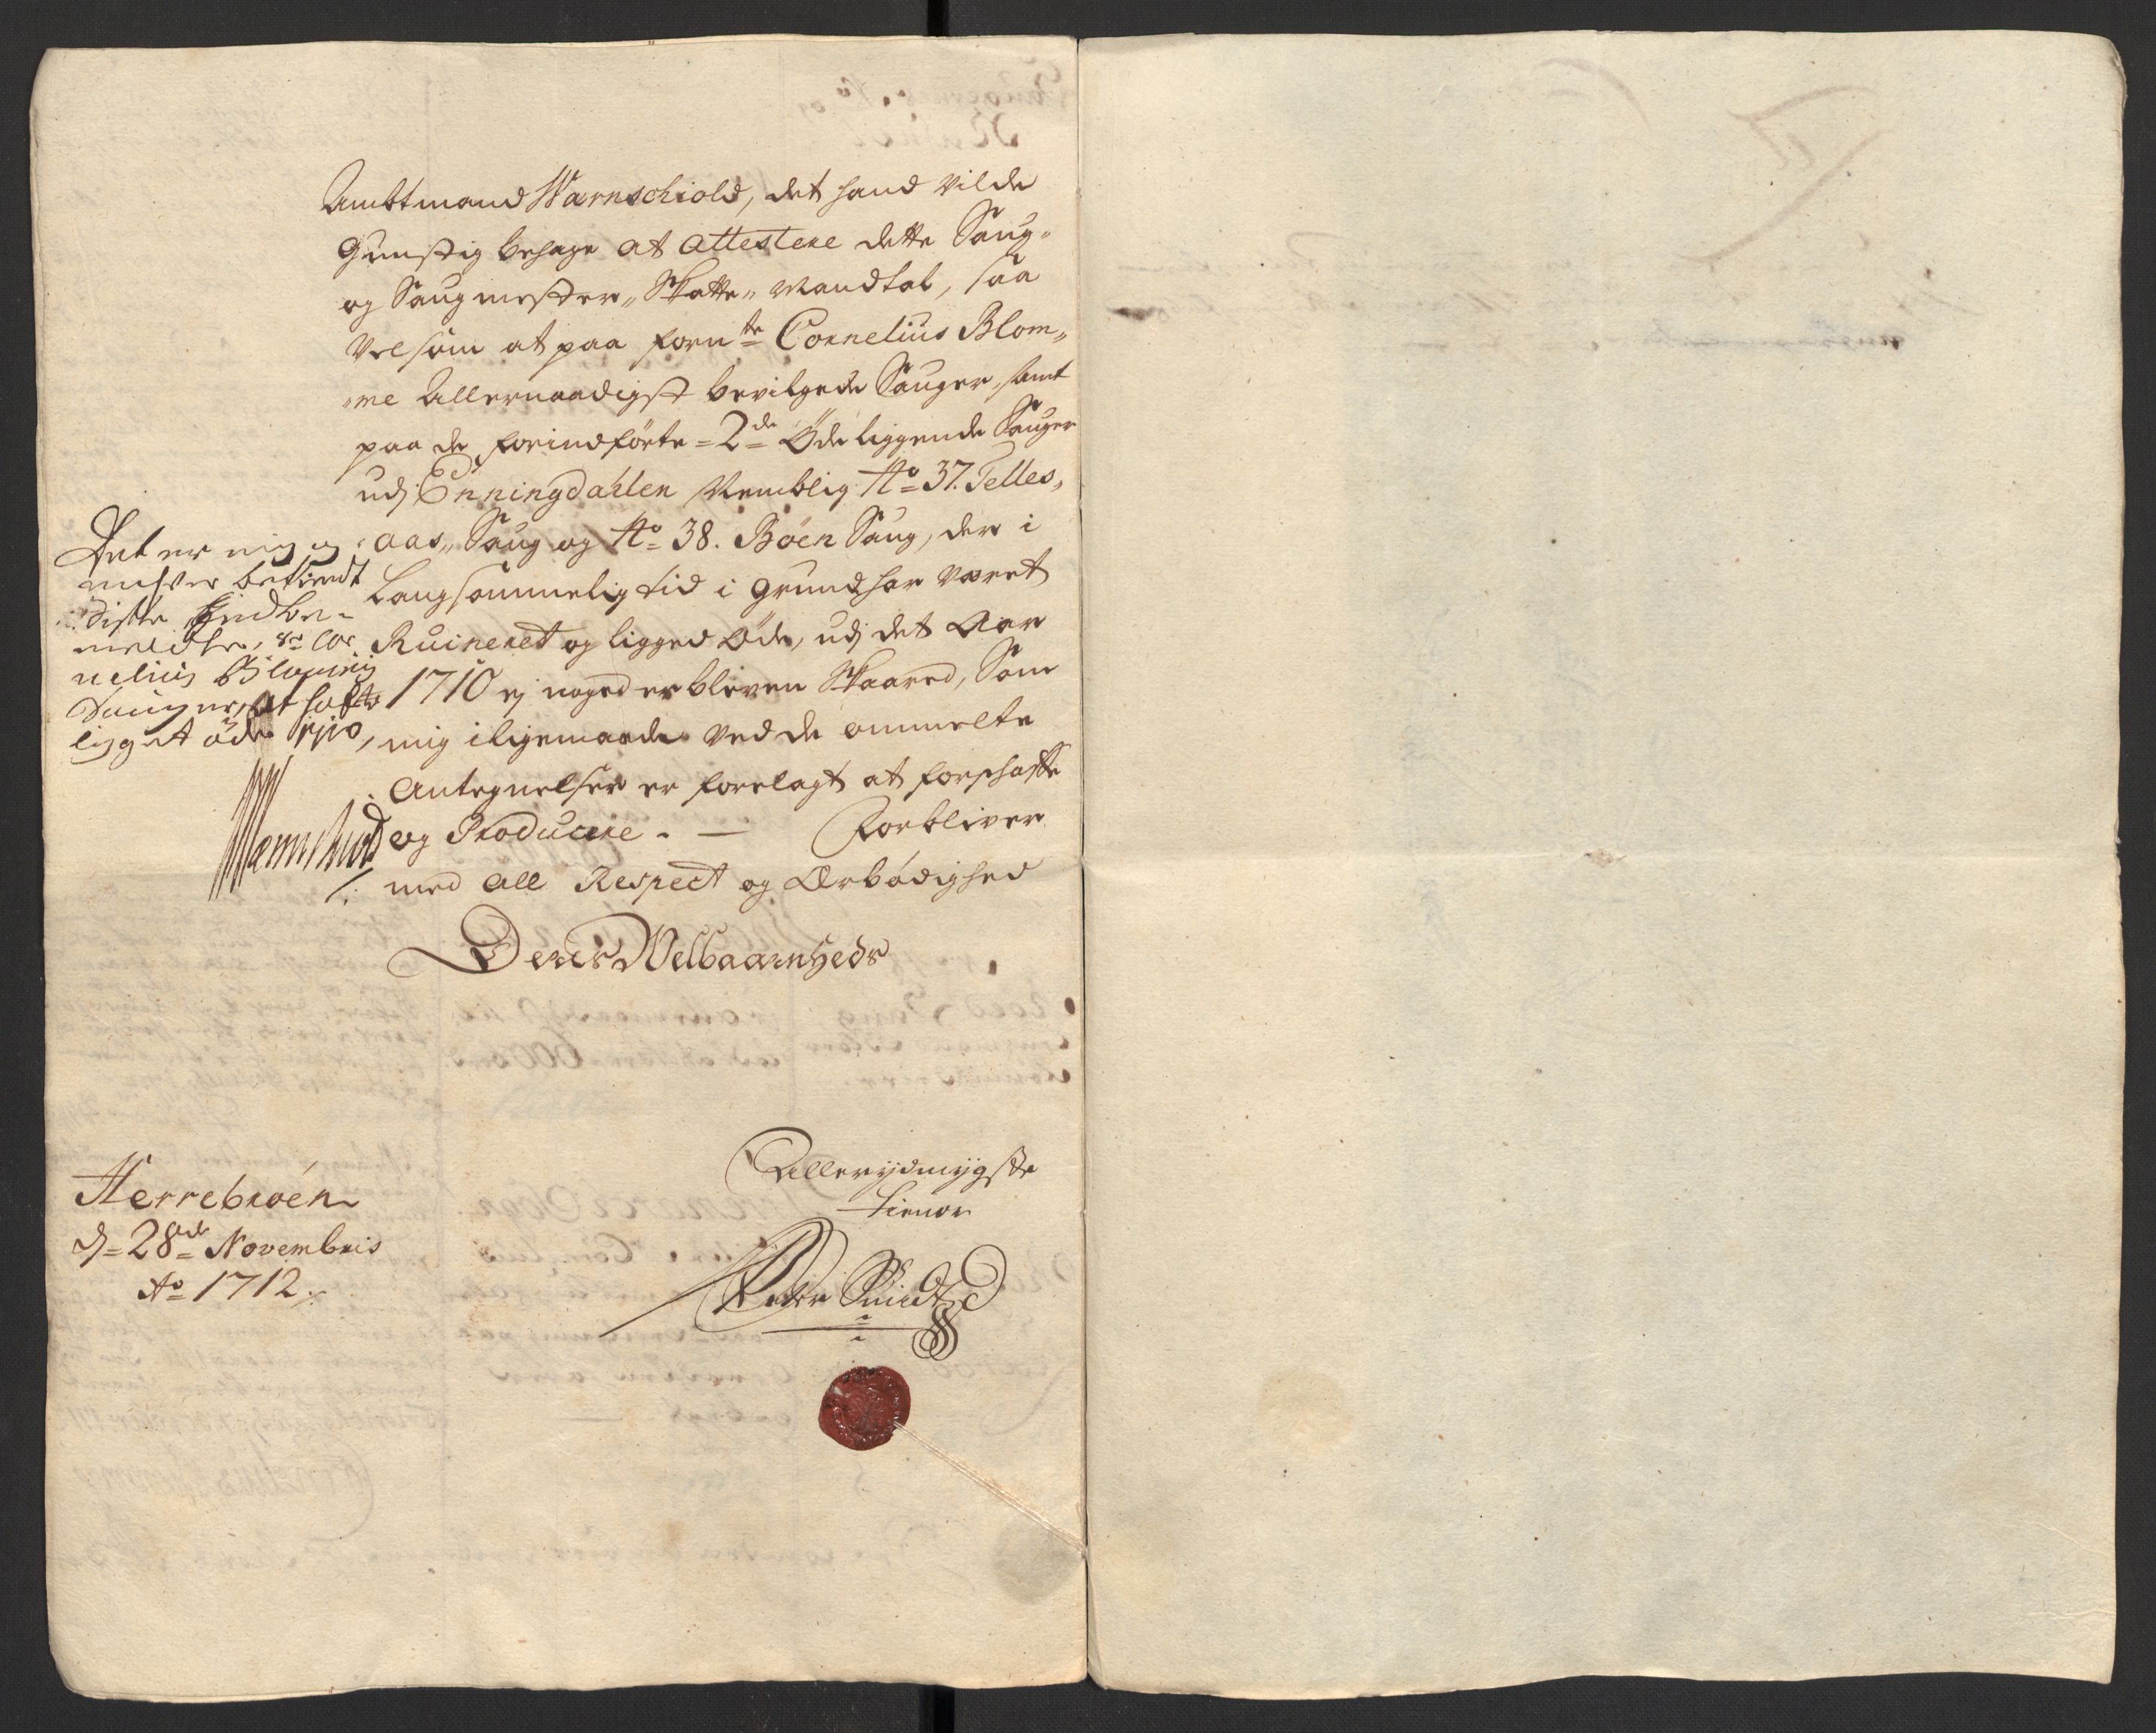 Ambtmand Warnschiold, det hand vilde
Gunstig behage at attestere dette Saug-
og Saugmester-Skatte-Mandtal, saa
vel som at paa fornte Cornelius Blom-
me Allernaadigst bevilgede Sauger, samt
paa de forindførte 2de Øde liggende Sauger
udj Enningdahlen Nemblig No 37. Telles-
aas, Saug og No 38. Böen Saug, der i
Langsommelig tid i grund har været
Ruineret og ligged øde, udj det Aar
1710 ej noged er bleven Skaared, Som
mig iligemaade ved de ommelte
Antegnelser er forelagt at forschaffe
og Producere. — Forbliver
med all Respect og Ærbödighed
Deres Welbaarnheds
Det er mig og
bekiendt
diste
Sr Cor
nelius Blommis
Sauger, at hafve
ligget øde 1710,
Warnschiold
Herrebröen
d. 28de Novembris
Ao 1712.
Allerydmygste
Tiener
Peder Smidt